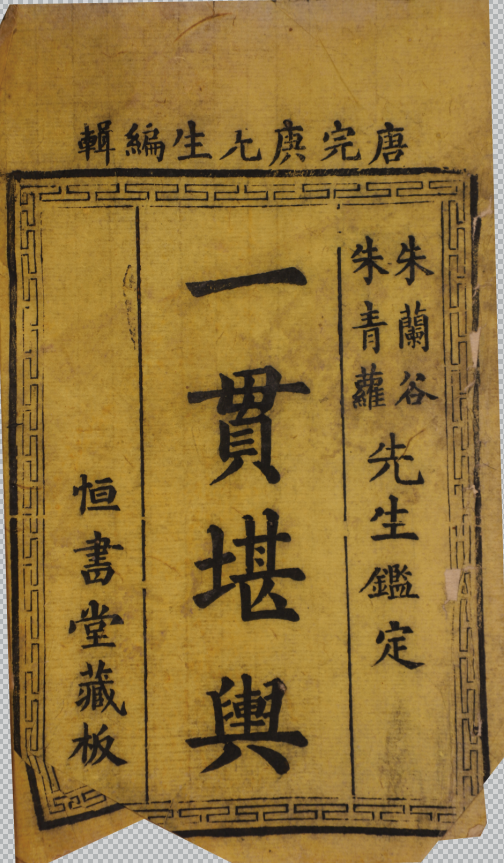 唐完庚先生編輯
朱蘭谷
朱青蘿
先生鑑定
一貫堪輿
恒書堂藏板